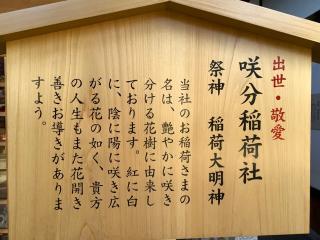 出世・敬愛
咲分稲荷社
祭神 稲荷大明神
当社のお稲荷さまの
名は、艶やかに咲き
分ける花樹に由来し
ております。紅に白
に、陰に陽に咲き広
がる花の如く、貴方
の人生もまた花開き
善きお導きがありま
すよう。